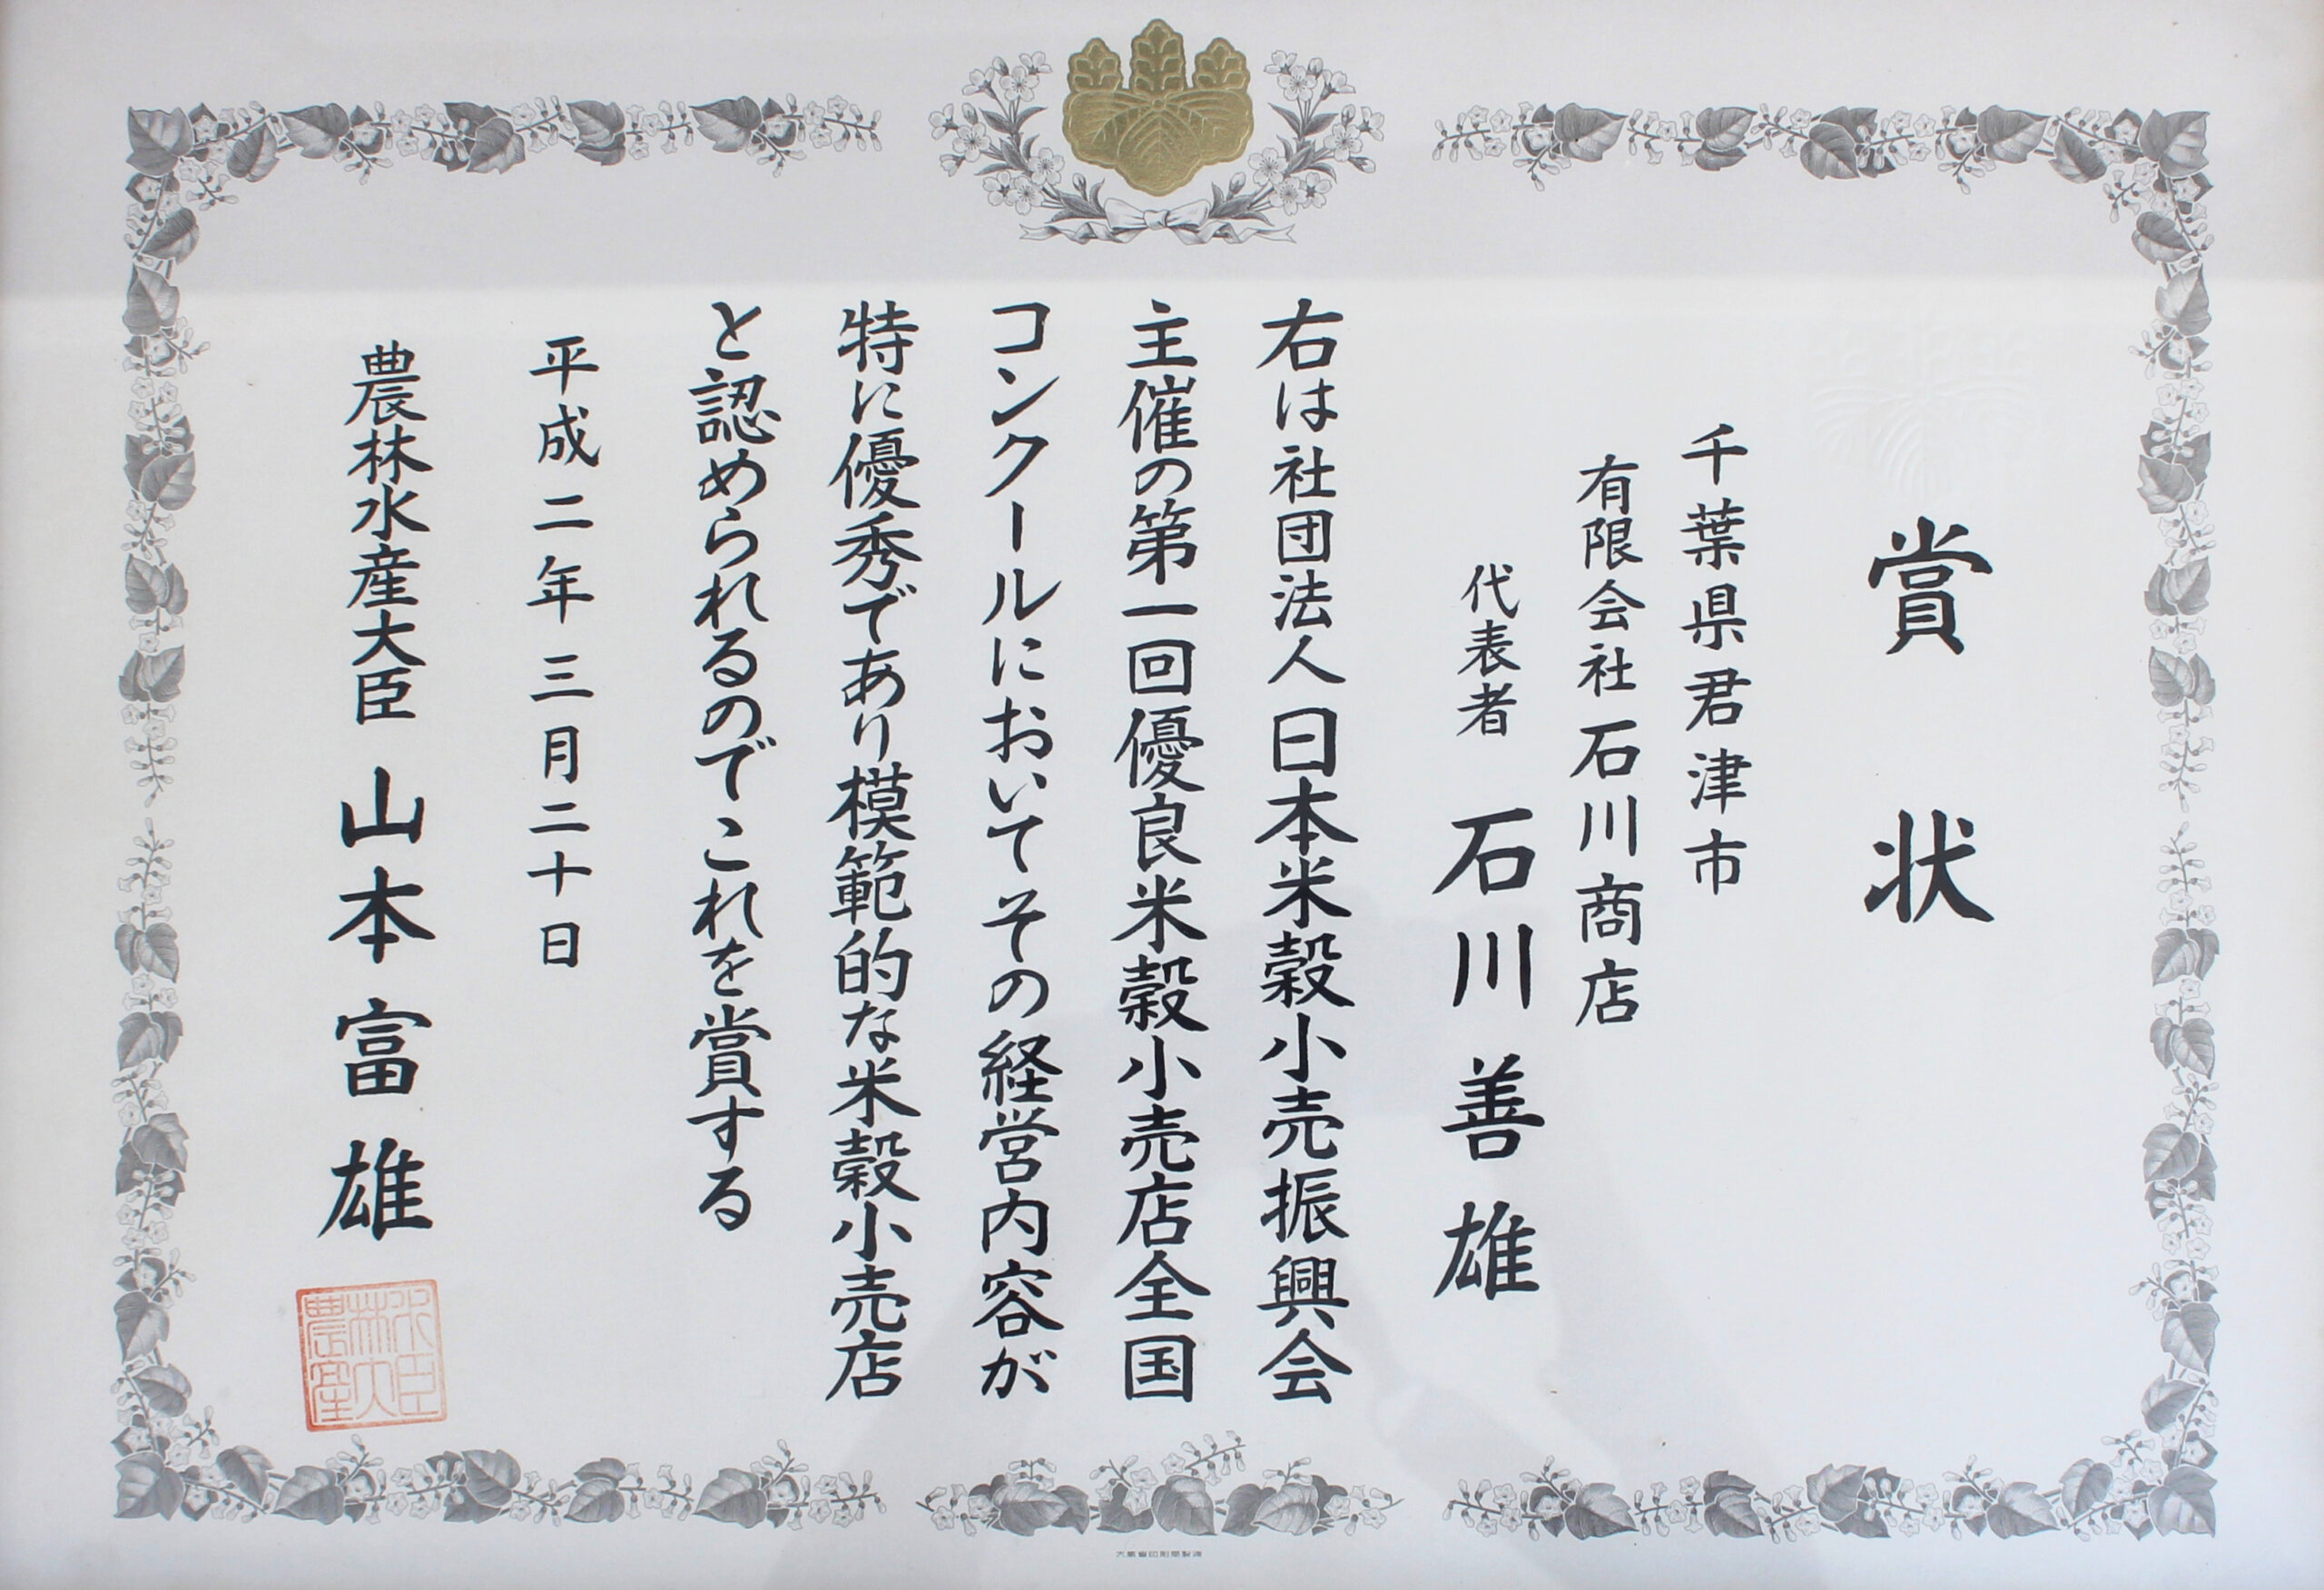 賞状
千葉県君津市
有限会社石川商店
代表者 石川善雄
右は社団法人日本米穀小売振興会
主催の第一回優良米穀小売店全国
コンクールにおいてその経営内容が
特に優秀であり模範的な米穀小売店
と認められるのでこれを賞する
平成二年三月二十日
農林水産大臣 山本富雄
大蔵省印刷局製造